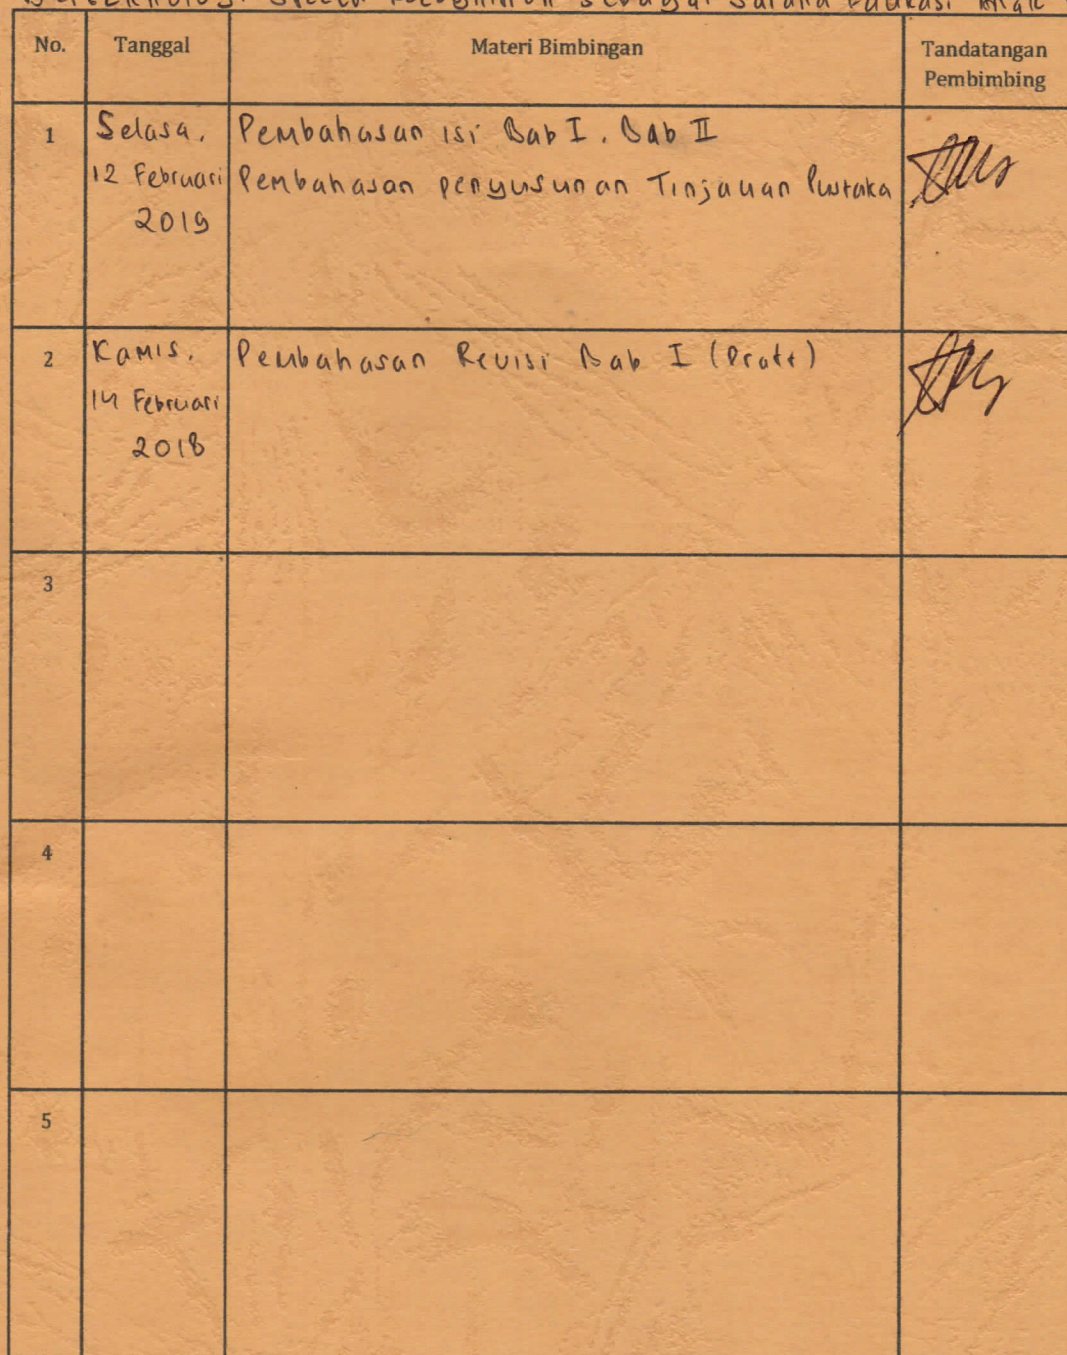 sebagai sarana Edukasi Anak
No. Tanggal Materi Bimbingan Tandatangan Pembimbing
1 Selasa, 12 Februari 2019
Pembahasan isi Bab I, Bab II
Pembahasan penyusunan Tinjauan Pustaka
2 Kamis, 14 Februari 2018
Pembahasan Revisi Bab I (Draft)
3
4
5